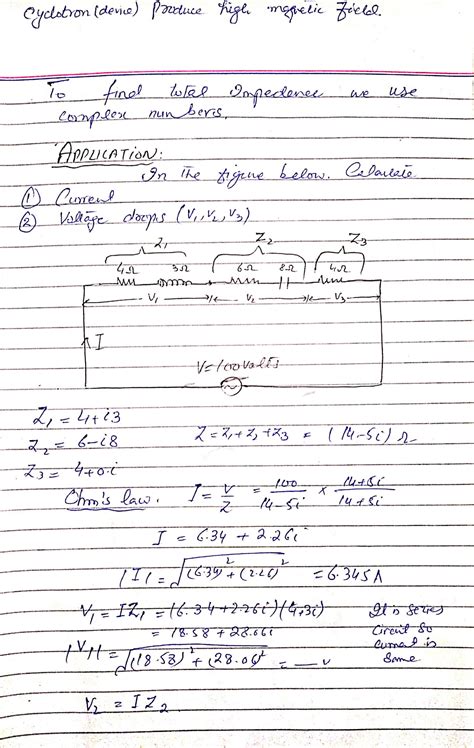 Cyclotron (device) Produce high magnetic field.
To find total Impedence we use
complex numbers.
APPLICATION:
In the figure below. Calculate
① Current
② Voltage drops (V₁, V₂, V₃)
Z₁ Z₂ Z₃
4Ω 3Ω 6Ω 8Ω 4Ω
V₁ V₂ V₃
I
V=100volts
Z₁ = 4+i3
Z₂ = 6-i8 Z = Z₁ + Z₂ + Z₃ = (14-5i) Ω
Z₃ = 4+0.i
Ohm's law. I = V/Z = 100/14-5i × 14+5i/14+5i
I = 6.34 + 2.26i
|I| = √(6.34)² + (2.26)² = 6.345A
V₁ = IZ₁ = (6.34+2.26i)(4+3i) It is series
= 18.58 + 28.06i circuit so
|V₁| = √(18.58)² + (28.06)² = — v current is
same
V₂ = I Z₂